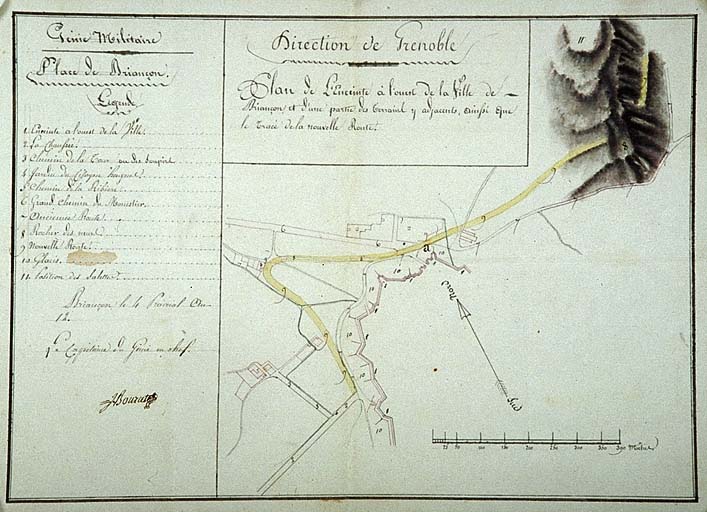 Génie Militaire
Place de Briançon
Légende
1. Enceinte à l'ouest de la Ville.
2. La Chaussée
3 Chemin de la Tour ou des Soupirs
4 Jardin du Citoyen
5 Chemin de la Ribière
6 Grand chemin du Monestier
7 Ancienne Route
8 Rocher des murs
9 Nouvelle Route
10 Glacis
11. Position des Salettes
Briançon le 4 Prairial An
12.
Le Capitaine du Génie en chef
Direction de Grenoble
Plan de L'Enceinte à l'ouest de la Ville de
Briançon et d'une partie des terrains y adjacents, ainsi que
le Tracé de la nouvelle Route.
11
6
6
9
10
a
Nord
Sud
25 50 100 150 200 250 300 350 390 Mètres